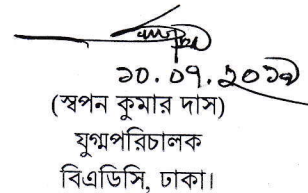 ১০.০৭.২০১৭
(স্বপন কুমার দাস)
যুগ্মপরিচালক
বিএডিসি, ঢাকা।